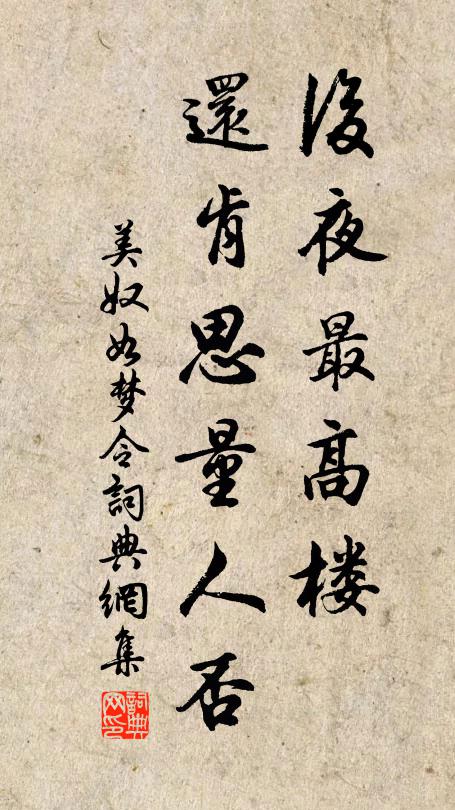 後夜最高楼
還肯思量人否
美奴如梦令詞典網集
詞典网印